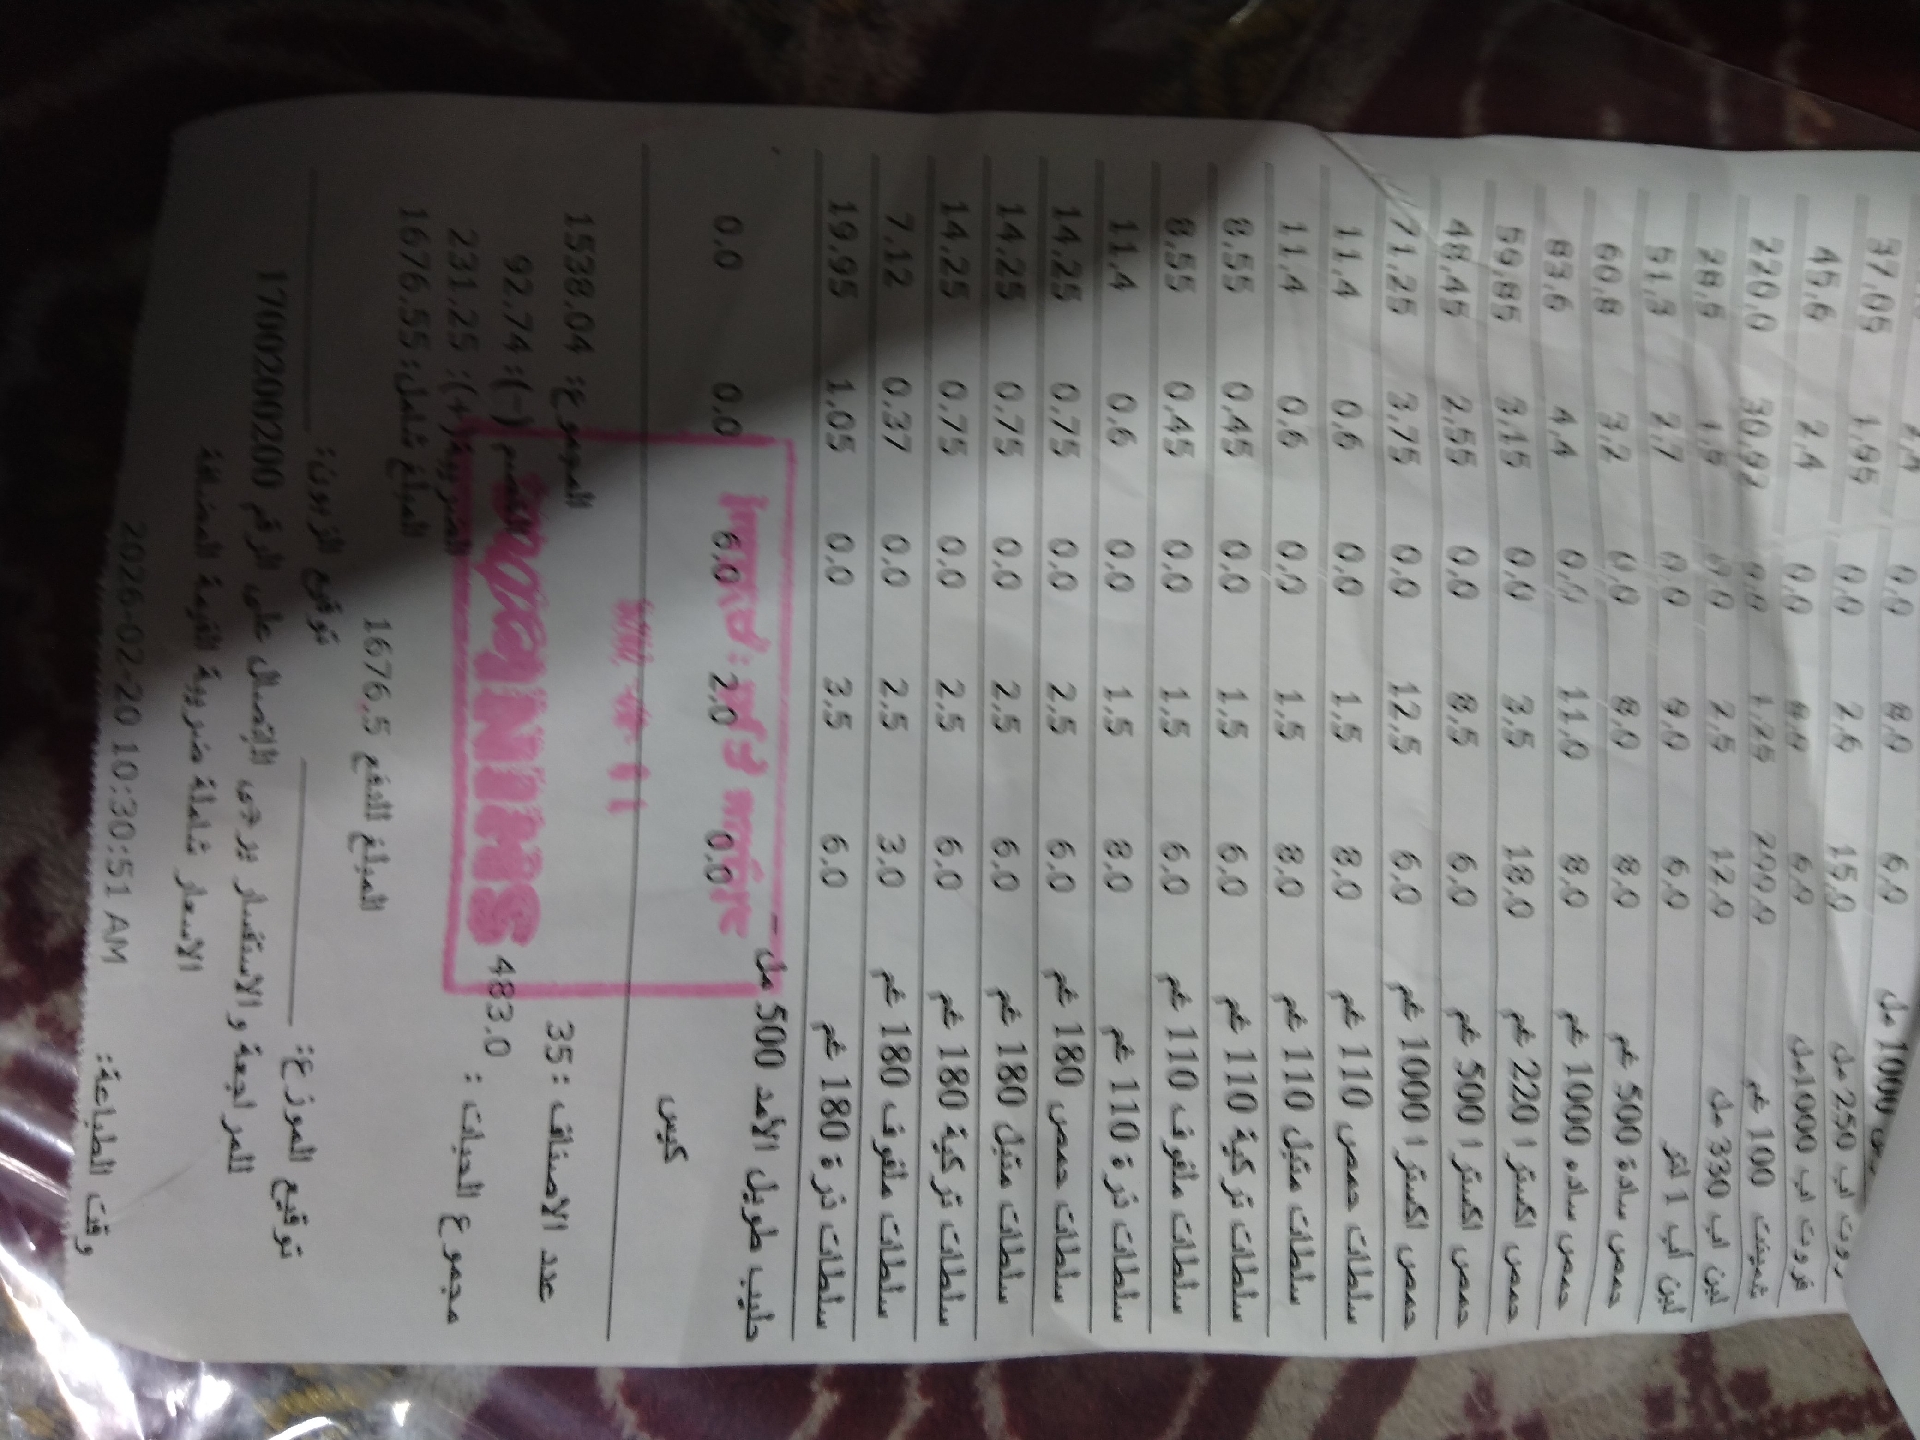 1000 مل 6.0 8.0 0.0 2.4
250 مل 15.0 2.6 0.0 1.95 37.05
فروت اب 1000مل 6.0 8.0 0.0 2.4 45.6
شمينت 100 غم 299.0 1.25 0.0 30.92 220.0
لبن اب 330 مل 12.0 2.5 0.0 1.5 28.5
لبن اب 1 لتر 6.0 9.0 0.0 2.7 51.3
حمص سادة 500 غم 8.0 8.0 0.0 3.2 60.8
حمص ساده 1000 غم 8.0 11.0 0.0 4.4 83.6
حمص اكسترا 220 غم 18.0 3.5 0.0 3.15 59.85
حمص اكسترا 500 غم 6.0 8.5 0.0 2.55 48.45
حمص اكسترا 1000 غم 6.0 12.5 0.0 3.75 71.25
سلطات حمص 110 غم 8.0 1.5 0.0 0.6 11.4
سلطات متبل 110 غم 8.0 1.5 0.0 0.6 11.4
سلطات تركية 110 غم 6.0 1.5 0.0 0.45 8.55
سلطات ملفوف 110 غم 6.0 1.5 0.0 0.45 8.55
سلطات ذرة 110 غم 8.0 1.5 0.0 0.6 11.4
سلطات حمص 180 غم 6.0 2.5 0.0 0.75 14.25
سلطات متبل 180 غم 6.0 2.5 0.0 0.75 14.25
سلطات تركية 180 غم 6.0 2.5 0.0 0.75 14.25
سلطات ملفوف 180 غم 3.0 2.5 0.0 0.37 7.12
سلطات ذرة 180 غم 6.0 3.5 0.0 1.05 19.95
حليب طويل الأمد 500 مل - 0.0 2.0 6.0 0.0 0.0
كيس
عدد الاصناف : 35 المجموع: 1538.04
مجموع الحبات : 483.0 الخصم (-): 92.74
الضريبة(+): 231.25
المبلغ شامل: 1676.55
المبلغ الدفع 1676.5
توقيع الموزع: توقيع الزبون:
للمراجعة و الاستفسار يرجى الاتصال على الرقم 1700200200
الاسعار شاملة ضريبة القيمة المضافة
وقت الطباعة: 2026-02-20 10:30:51 AM